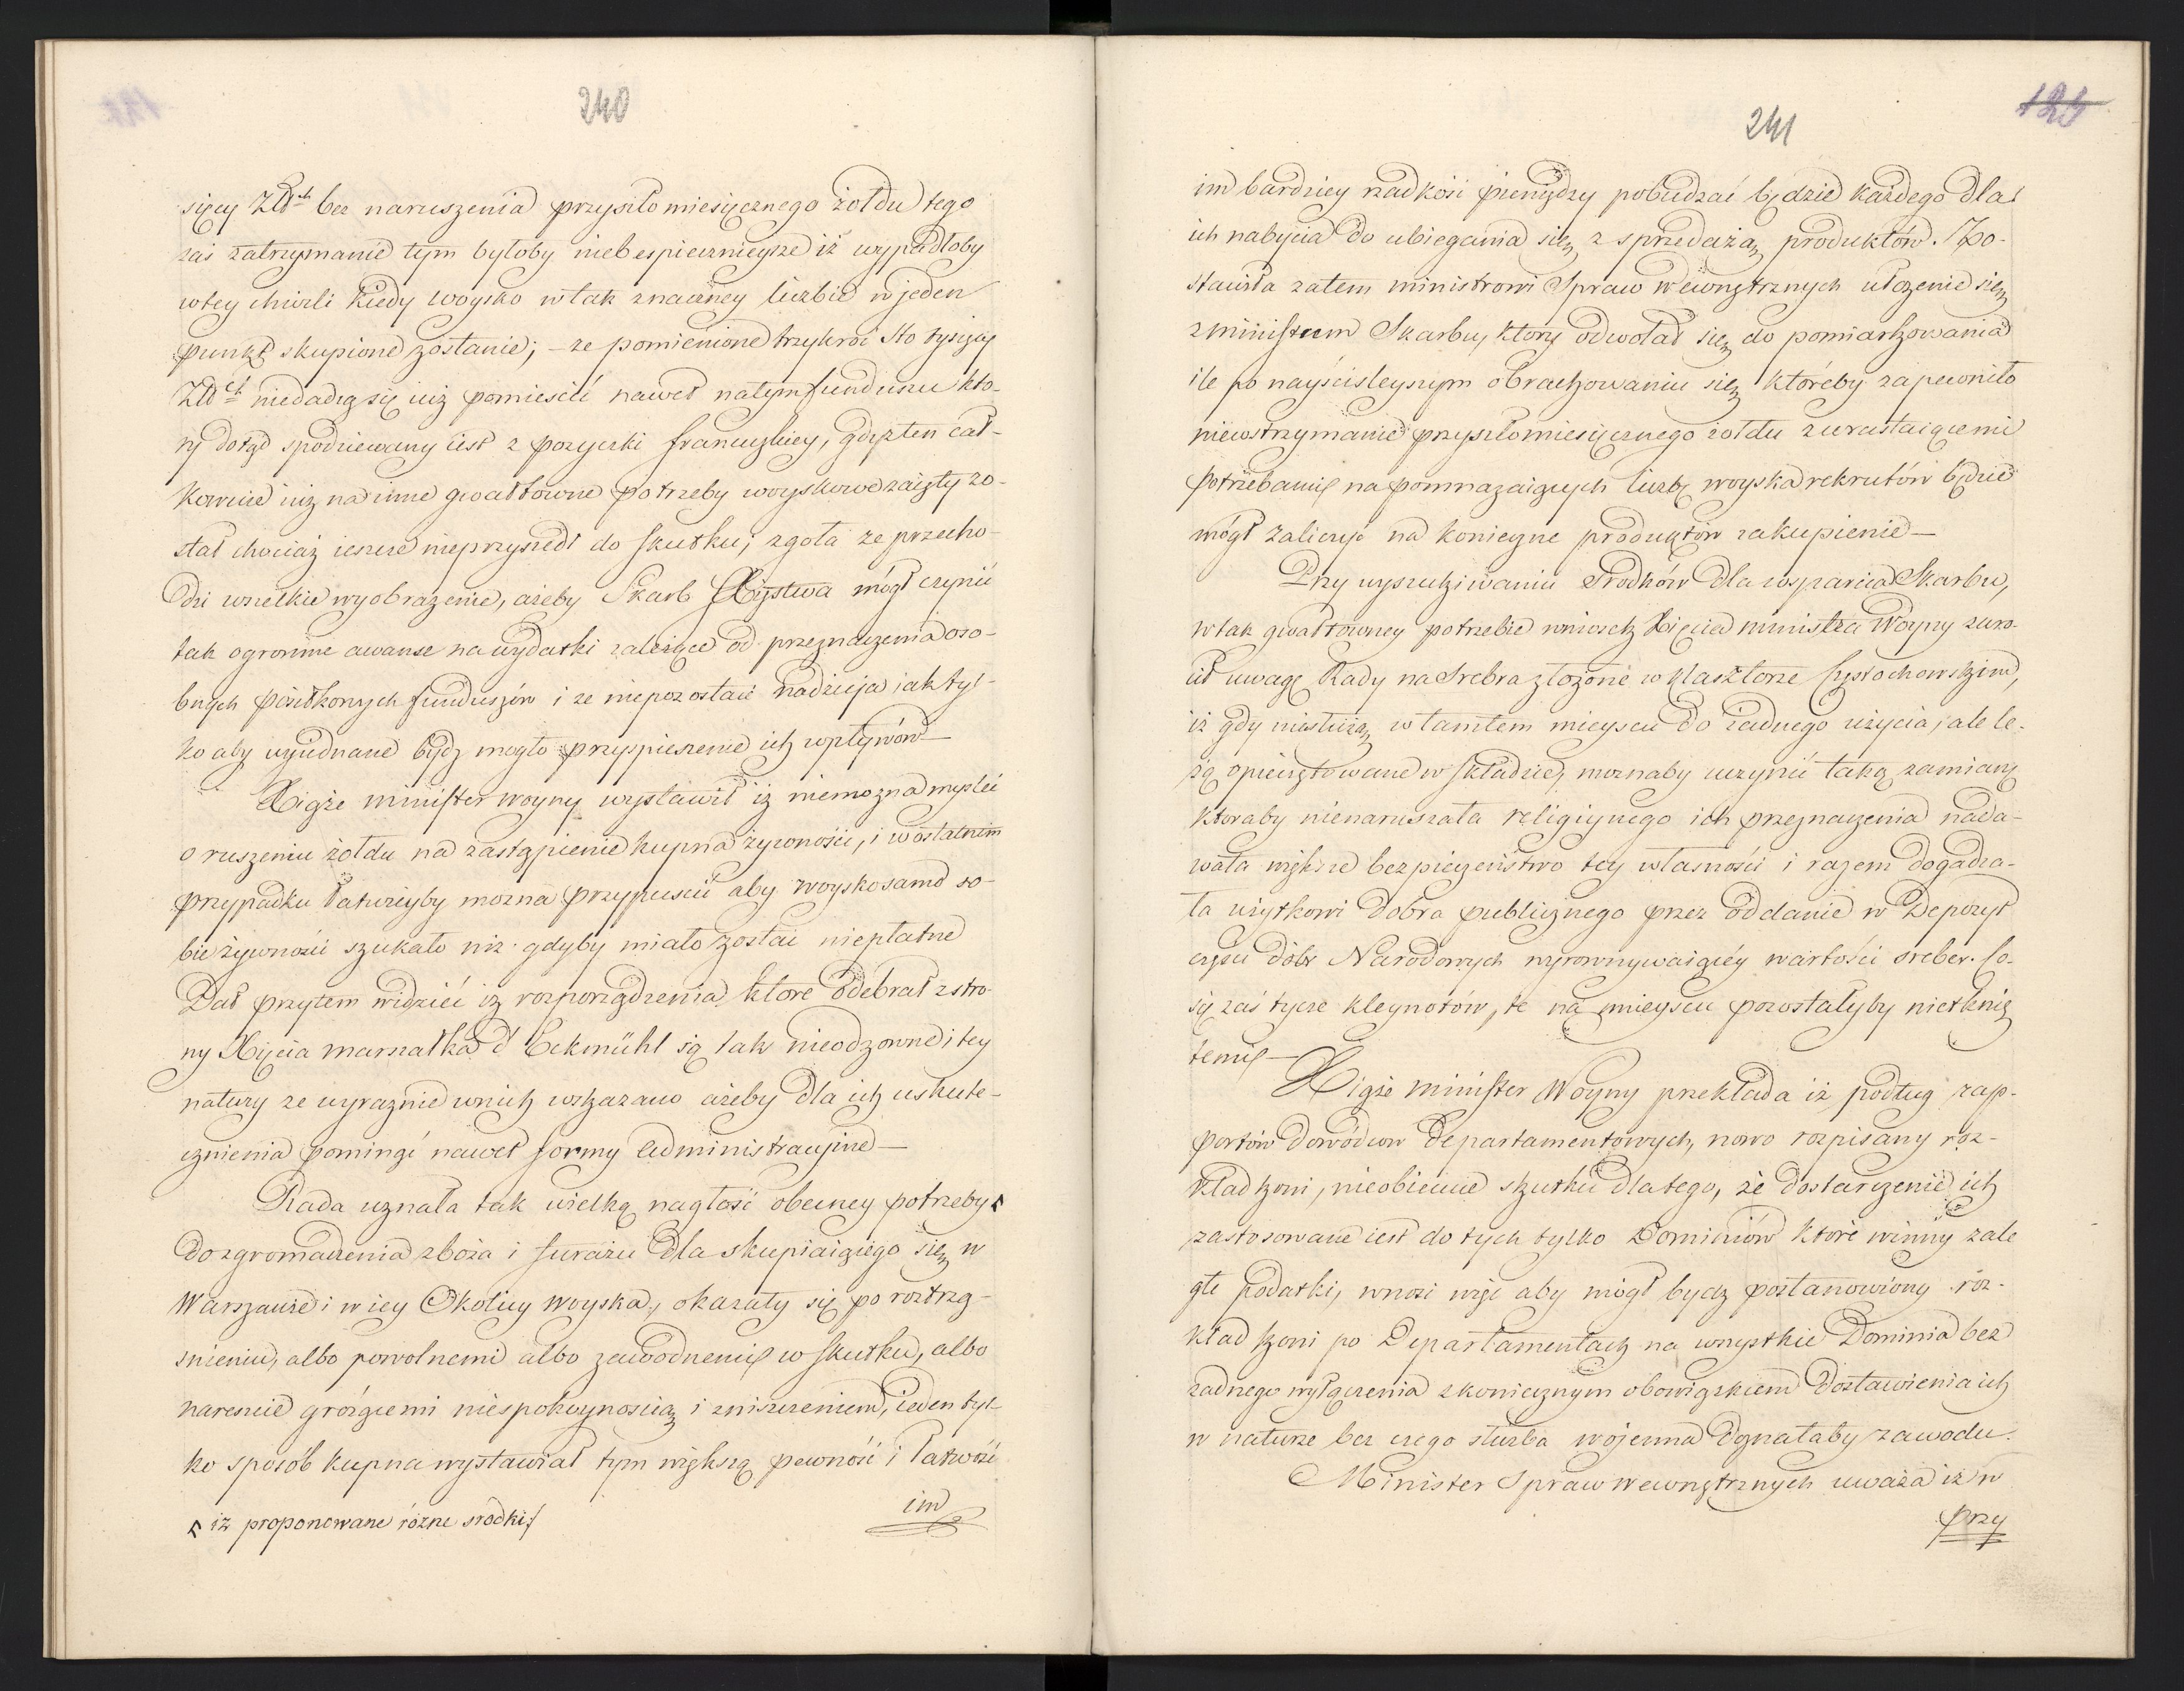 240
sięcy Złłch bez naruszenia przyszło miesięcznego żołdu tego
zaś zatrzymanie tym byłoby niebespiecznieysze iż wypadłoby
w tey chwili kiedy woysko w tak znaczney liczbie w jeden
punkt skupione zostanie; – że pomienione trzykroć sto tysięcy
Złłch niedadzą się iuż pomieścić nawet na tym funduszu któ-
ry dotąd spodziewany iest z pożyczki francuzkiey, gdyż ten cał-
kowicie iuż na inne gwałtowne potrzeby woyskowe zaięty zo-
stał chociaż ieszcze nieprzyszedł do skutku; zgoła że przecho-
dzi wszelkie wyobrażenie, ażeby Skarb Xięstwa mógł czynić
tak ogromne awanse na wydatki zależące od przeznaczenia oso-
bnych posiłkowych funduszów i że niepozostaie nadzieja iak tyl-
ko aby wyiednane bydź mogło przyspieszenie ich wpływów –
Xiąże minister woyny wystawił iż niemożna myśleć
o ruszeniu żołdu na zastąpienie kupna żywności, i w ostatnim
przypadku łatwieyby można przypuścić aby woysko samo so-
bie żywności szukało niż gdyby miało zostać niepłatne
Dał przytem widzieć iż rozporządzenia które odebrał z stro-
ny Xięcia marszałka d'Eckmühl są tak nieodzowne i tey
natury że wyraźnie w nich wskazano ażeby dla ich uskute-
cznienia pominąć nawet formy administracyine –
Rada uznała tak wielką nagłość obecney potrzeby
do zgromadzenia zboża i furażu dla skupiaiącego się w
Warszawie i w iey Okolicy woyska, okazały się po roztrzą-
śnieniu, albo powolnemi albo zawodnemi w skutku, albo
nareszcie grożącemi niespokoynością i zniszczeniem, ieden tyl-
ko sposób kupna wystawiał tym większą pewność i łatwość
iż proponowane różne srodki
im
241
124
im bardziey rzadkość pieniędzy pobudzać będzie każdego dla
ich nabycia do ubiegania się z sprzedażą produktów. Zo-
stawiła zatem ministrowi Spraw Wewnętrznych ułożenie się
z ministrem Skarbu, który odwołał się do pomiarkowania
ile po nayściśleyszym obrachowaniu się któreby zapewniło
niewstrzymanie przyszłomiesięcznego żołdu z wzrastaiącemi
potrzebami na pomnażaiących liczbę woyska rekrutów będzie
mógł zaliczyć na konieczne produktów zakupienie –
Przy wyszukiwaniu Srodków dla wsparcia Skarbu,
w tak gwałtowney potrzebie wniosek Xięcia ministra Woyny zwró-
cił uwagę Rady na Srebra złożone w klasztorze Częstochowskim,
iż gdy niesłużą w tamtem mieyscu do żadnego użycia, ale le-
żą opieczętowane w składzie, możnaby uczynić taką zamianę
któraby nienaruszała religiynego ich przeznaczenia nada-
wała większe bezpieczeństwo tey własności i razem dogadza-
ła użytkowi dobra publicznego przez oddanie w Depozyt
części dóbr Narodowych wyrownywaiącéy wartości sreber. Co
się zaś tycze kleynotów, te na mieyscu pozostałyby nietknię
temi –
Xiąże minister Woyny przekłada iż podług rap-
portów Dowódców Departamentowych, nowo rozpisany roz-
kład koni, nieobiecuie skutku dla tego, że dostarczenie ich
zastosowane iest do tych tylko Dominiów które winny zale
głe podatki, wnosi więc aby mógł bydź postanowiony roz-
kład koni po Departamentach na wszystkie Dominia bez
żadnego wyłączenia z koniecznym obowiązkiem dostawienia ich
w naturze bez czego służba wojenna doznałaby zawodu.
Minister Spraw wewnętrznych uważa iż w
przy